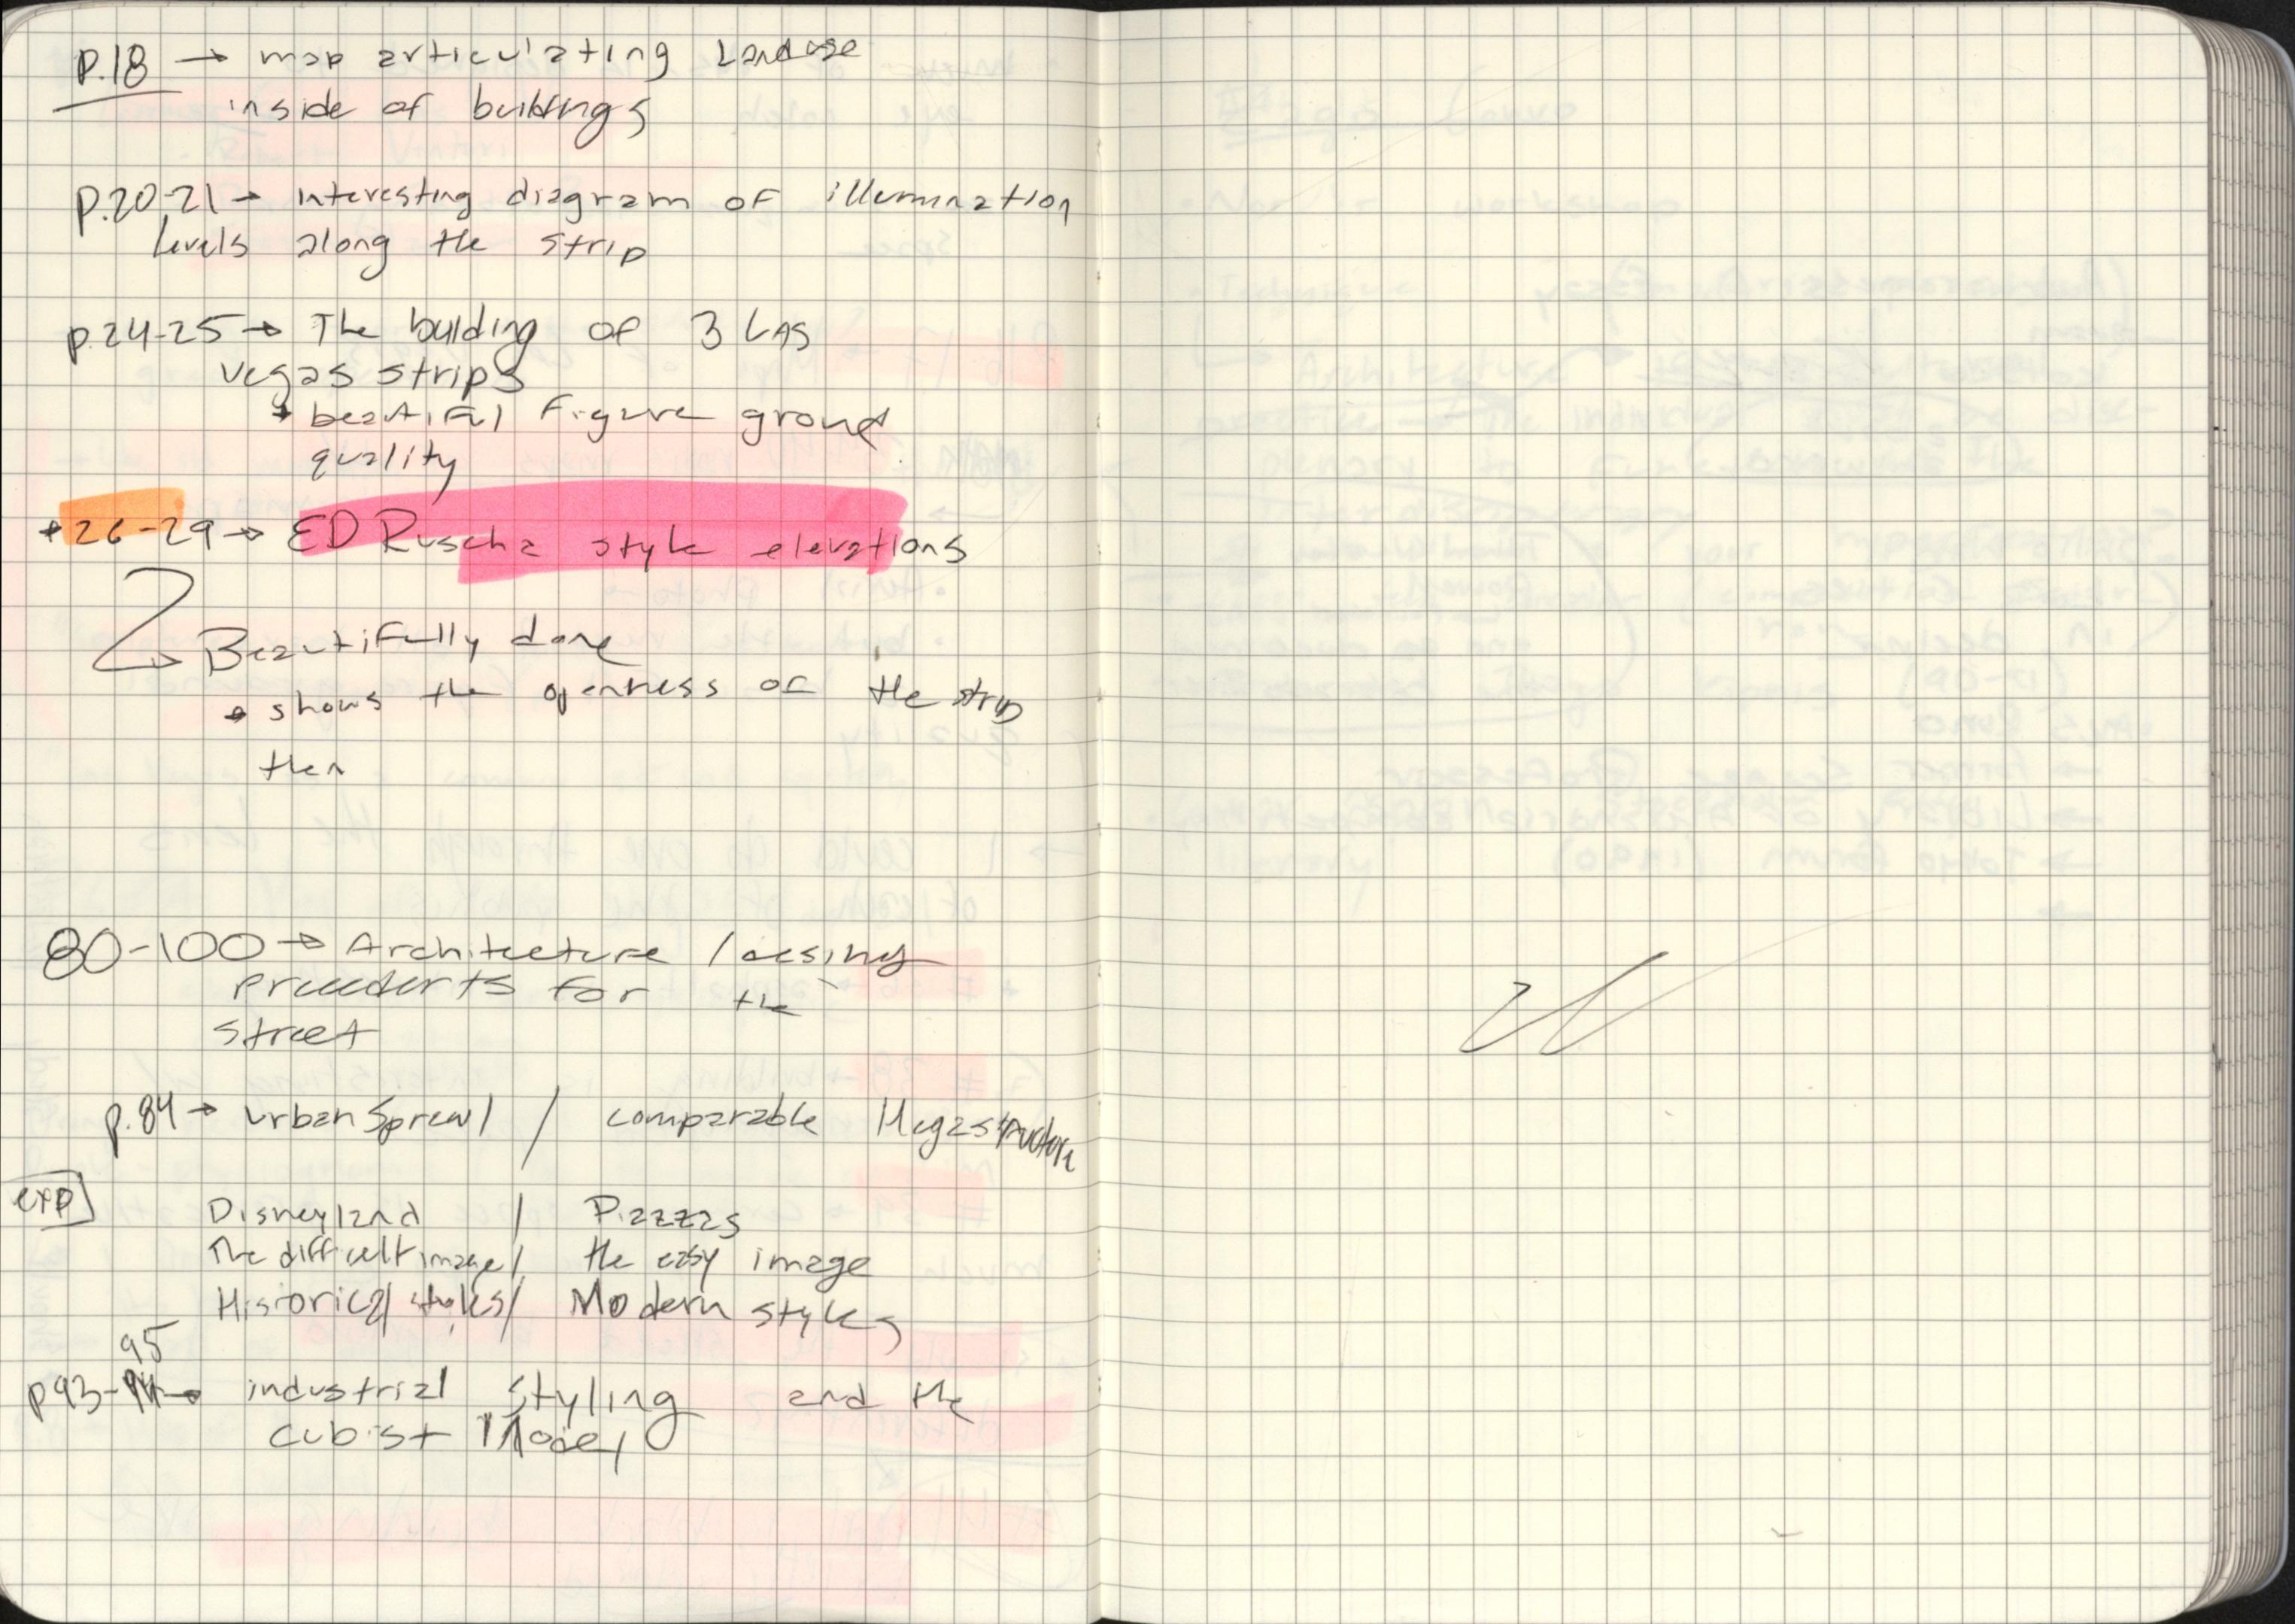 p.18 → map articulating Landuse
inside of buildings
p.20,21 → interesting diagram of illumination
levels along the strip
p.24-25 → The building of 3 LAS
vegas strips
→ beautiful figure ground
quality
* 26-29 → ED Ruscha style elevations
Beautifully done
→ shows the openness of the strip
then
80-100 → Architecture
precedents for the
street
p.84 → Urban Sprawl / comparable Megastructure
exp
Disneyland / Piazzas
The difficult image / the easy image
Historical styles / Modern styles
95
p93- → industrial styling and the
cubist Model